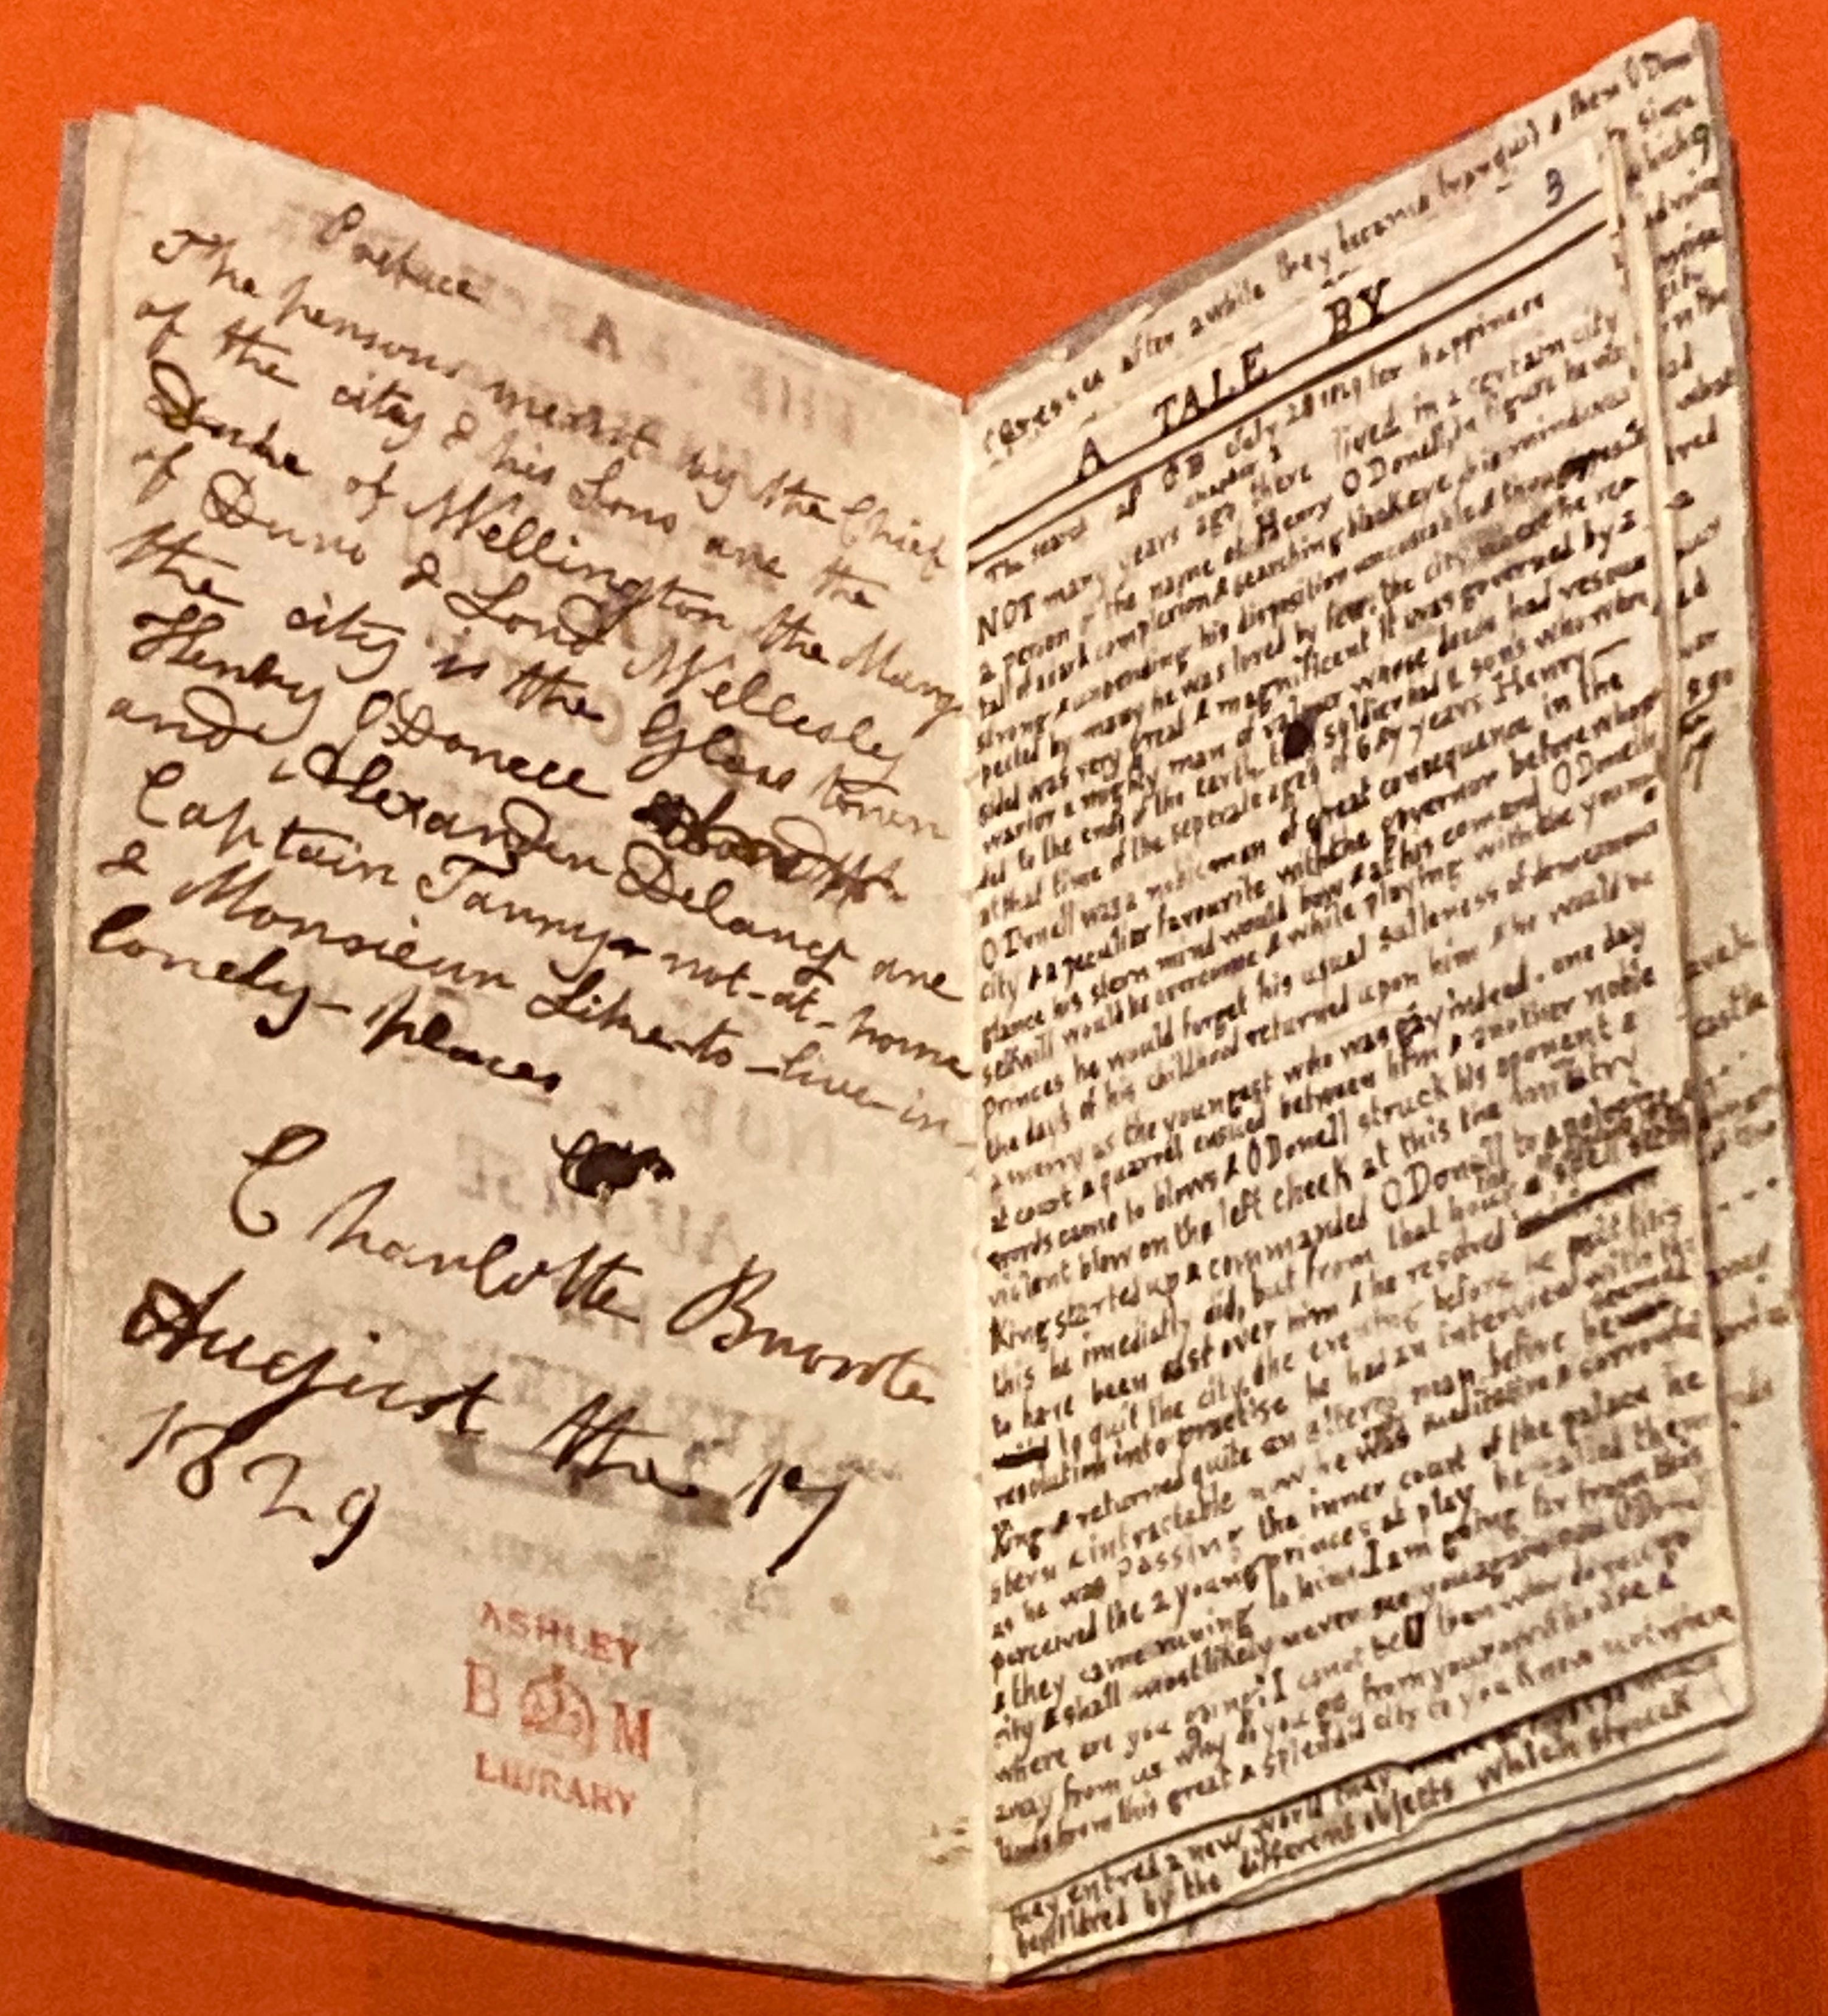 Preface
The persons meant by the Chief
of the city & his Sons are the
Duke of Wellington the Marq
of Duro & Lord Wellesley
the city is the Glass Town
Henry ODonell
and Alexander Delancy are
Captain Tarry-not-at-home
& Monsieur Like-to-live-in-
lonely-places
Charlotte Bronte
August the 17
1829
ASHLEY
B M
LIBRARY
after awhile they became tranquil & then O Don
3
A TALE BY
The search after happiness
chapter 1
NOT many years ago there lived in a certain city
a person of the name of Henry ODonell, in figure he was
tall of a dark complexion & searching black eye, his mind was
strong & unbending his disposition unsociable & though respec
pected by many he was loved by few. the city where he res
sided was very great & magnificent it was governed by a
warior a mighty man of valour whose deeds had resoun
ded to the ends of the earth. soldier had 2 sons who were
at that time of the seperate ages of 6 & 7 years Henry
O Donell was a nobleman of great consequence in the
city & a peculiar favourite with the governor before whose
glance his stern mind would bow & at his comand ODonells
selfwill would be overcome & while playing with the young
princes he would forget his usual sulleness of demeanour
the days of his childhood returned upon him & he would be
as merry as the youngest who was gay indeed. one day
at court a quarrel ensued between him & another noble
words came to blows & ODonell struck his oponent a
violent blow on the left cheek at this the military
King started up & commanded ODonell to apologise
this he imediatly did, but from that hour a spell seemed
to have been cast over him & he resolved
to quit the city. the evening before he put this
resolution into practise he had an interview with the
King & returned quite an altered man before he seemed
stern & intractable now he was meditative & sorrowful
as he was passing the inner court of the palace he
perceived the 2 young princes at play he called them
& they came runing to him. I am going far from this
city & shall most likely never see you again said O Donel
where are you going? I canot tell then why do you go
away from us why do you go from your own house &
lands from this great & splendid city to you know not where
they entred a new world they
bewildred by the different objects which struck